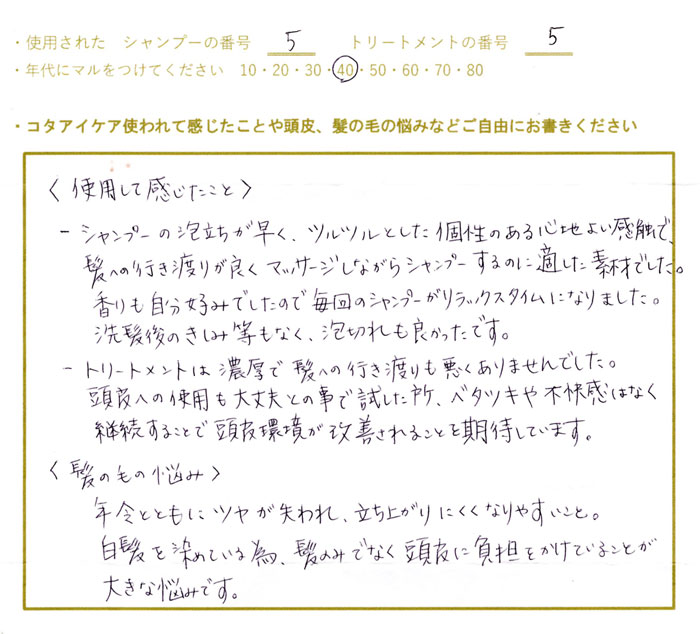 ・使用された　シャンプーの番号　5　トリートメントの番号　5
・年代にマルをつけてください　10・20・30・40・50・60・70・80
・コタアイケア使われて感じたことや頭皮、髪の毛の悩みなどご自由にお書きください
〈使用して感じたこと〉
- シャンプーの泡立ちが早く、ツルツルとした個性のある心地よい感触で、
髪への行き渡りが良くマッサージしながらシャンプーするのに適した素材でした。
香りも自分好みでしたので毎回のシャンプーがリラックスタイムになりました。
洗髪後のきしみ等もなく、泡切れも良かったです。
- トリートメントは濃厚で髪への行き渡りも悪くありませんでした。
頭皮への使用も大丈夫との事で試した所、ベタツキや不快感はなく
継続することで頭皮環境が改善されることを期待しています。
〈髪の毛の悩み〉
年令とともにツヤが失われ、立ち上がりにくくなりやすいこと。
白髪を染めている為、髪のみでなく頭皮に負担をかけていることが
大きな悩みです。